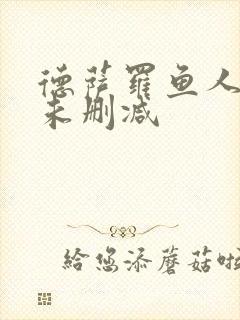 德萨罗鱼人
未删减
给您添蘑菇啦